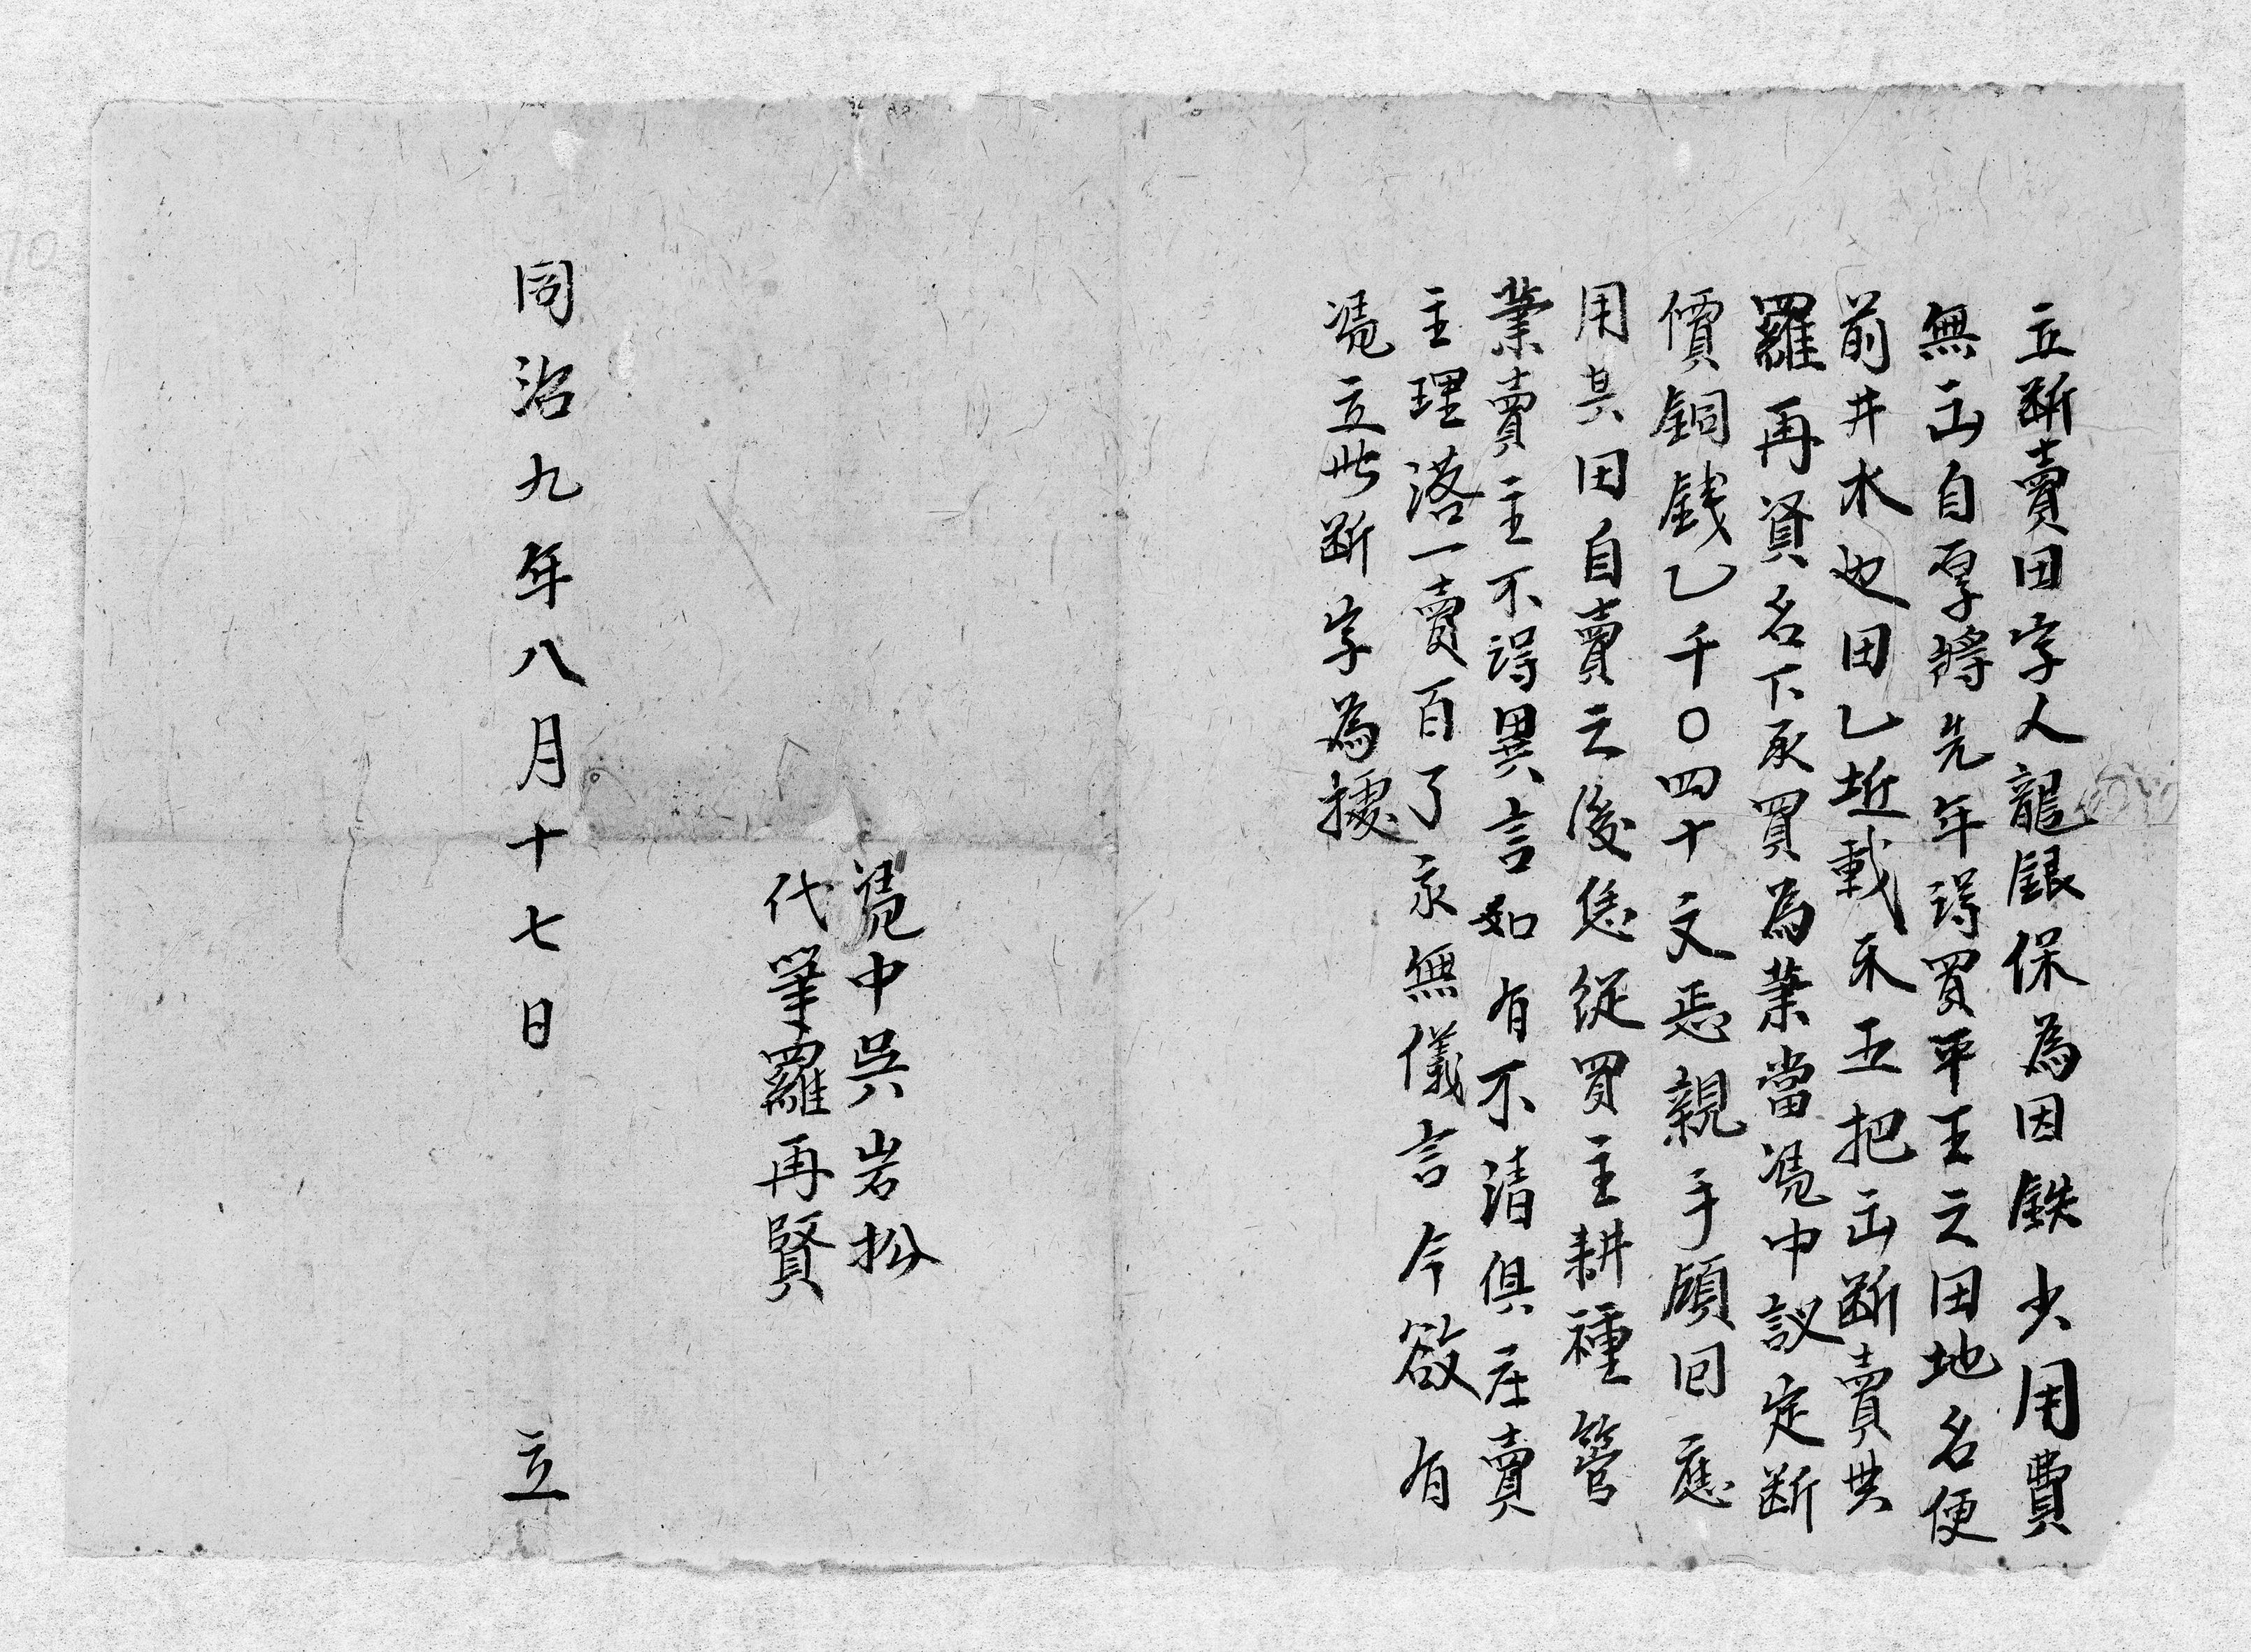 立断賣田字人龍銀保為因鉄少用費
無出自厚將先年得買平王之田地名便
前井水也田乙坵載禾五把出断賣與
羅再賢名下承買為業當凴中議定断
價銅錢乙千〇四十文恁親手領回應
用其田自賣之後恁從買主耕種管
業賣主不得異言如有不清俱在賣
主理落一賣百了永無儀言今欲有
凴立此断字為據
凴中吳岩松
代筆羅再賢
同治九年八月十七日 立